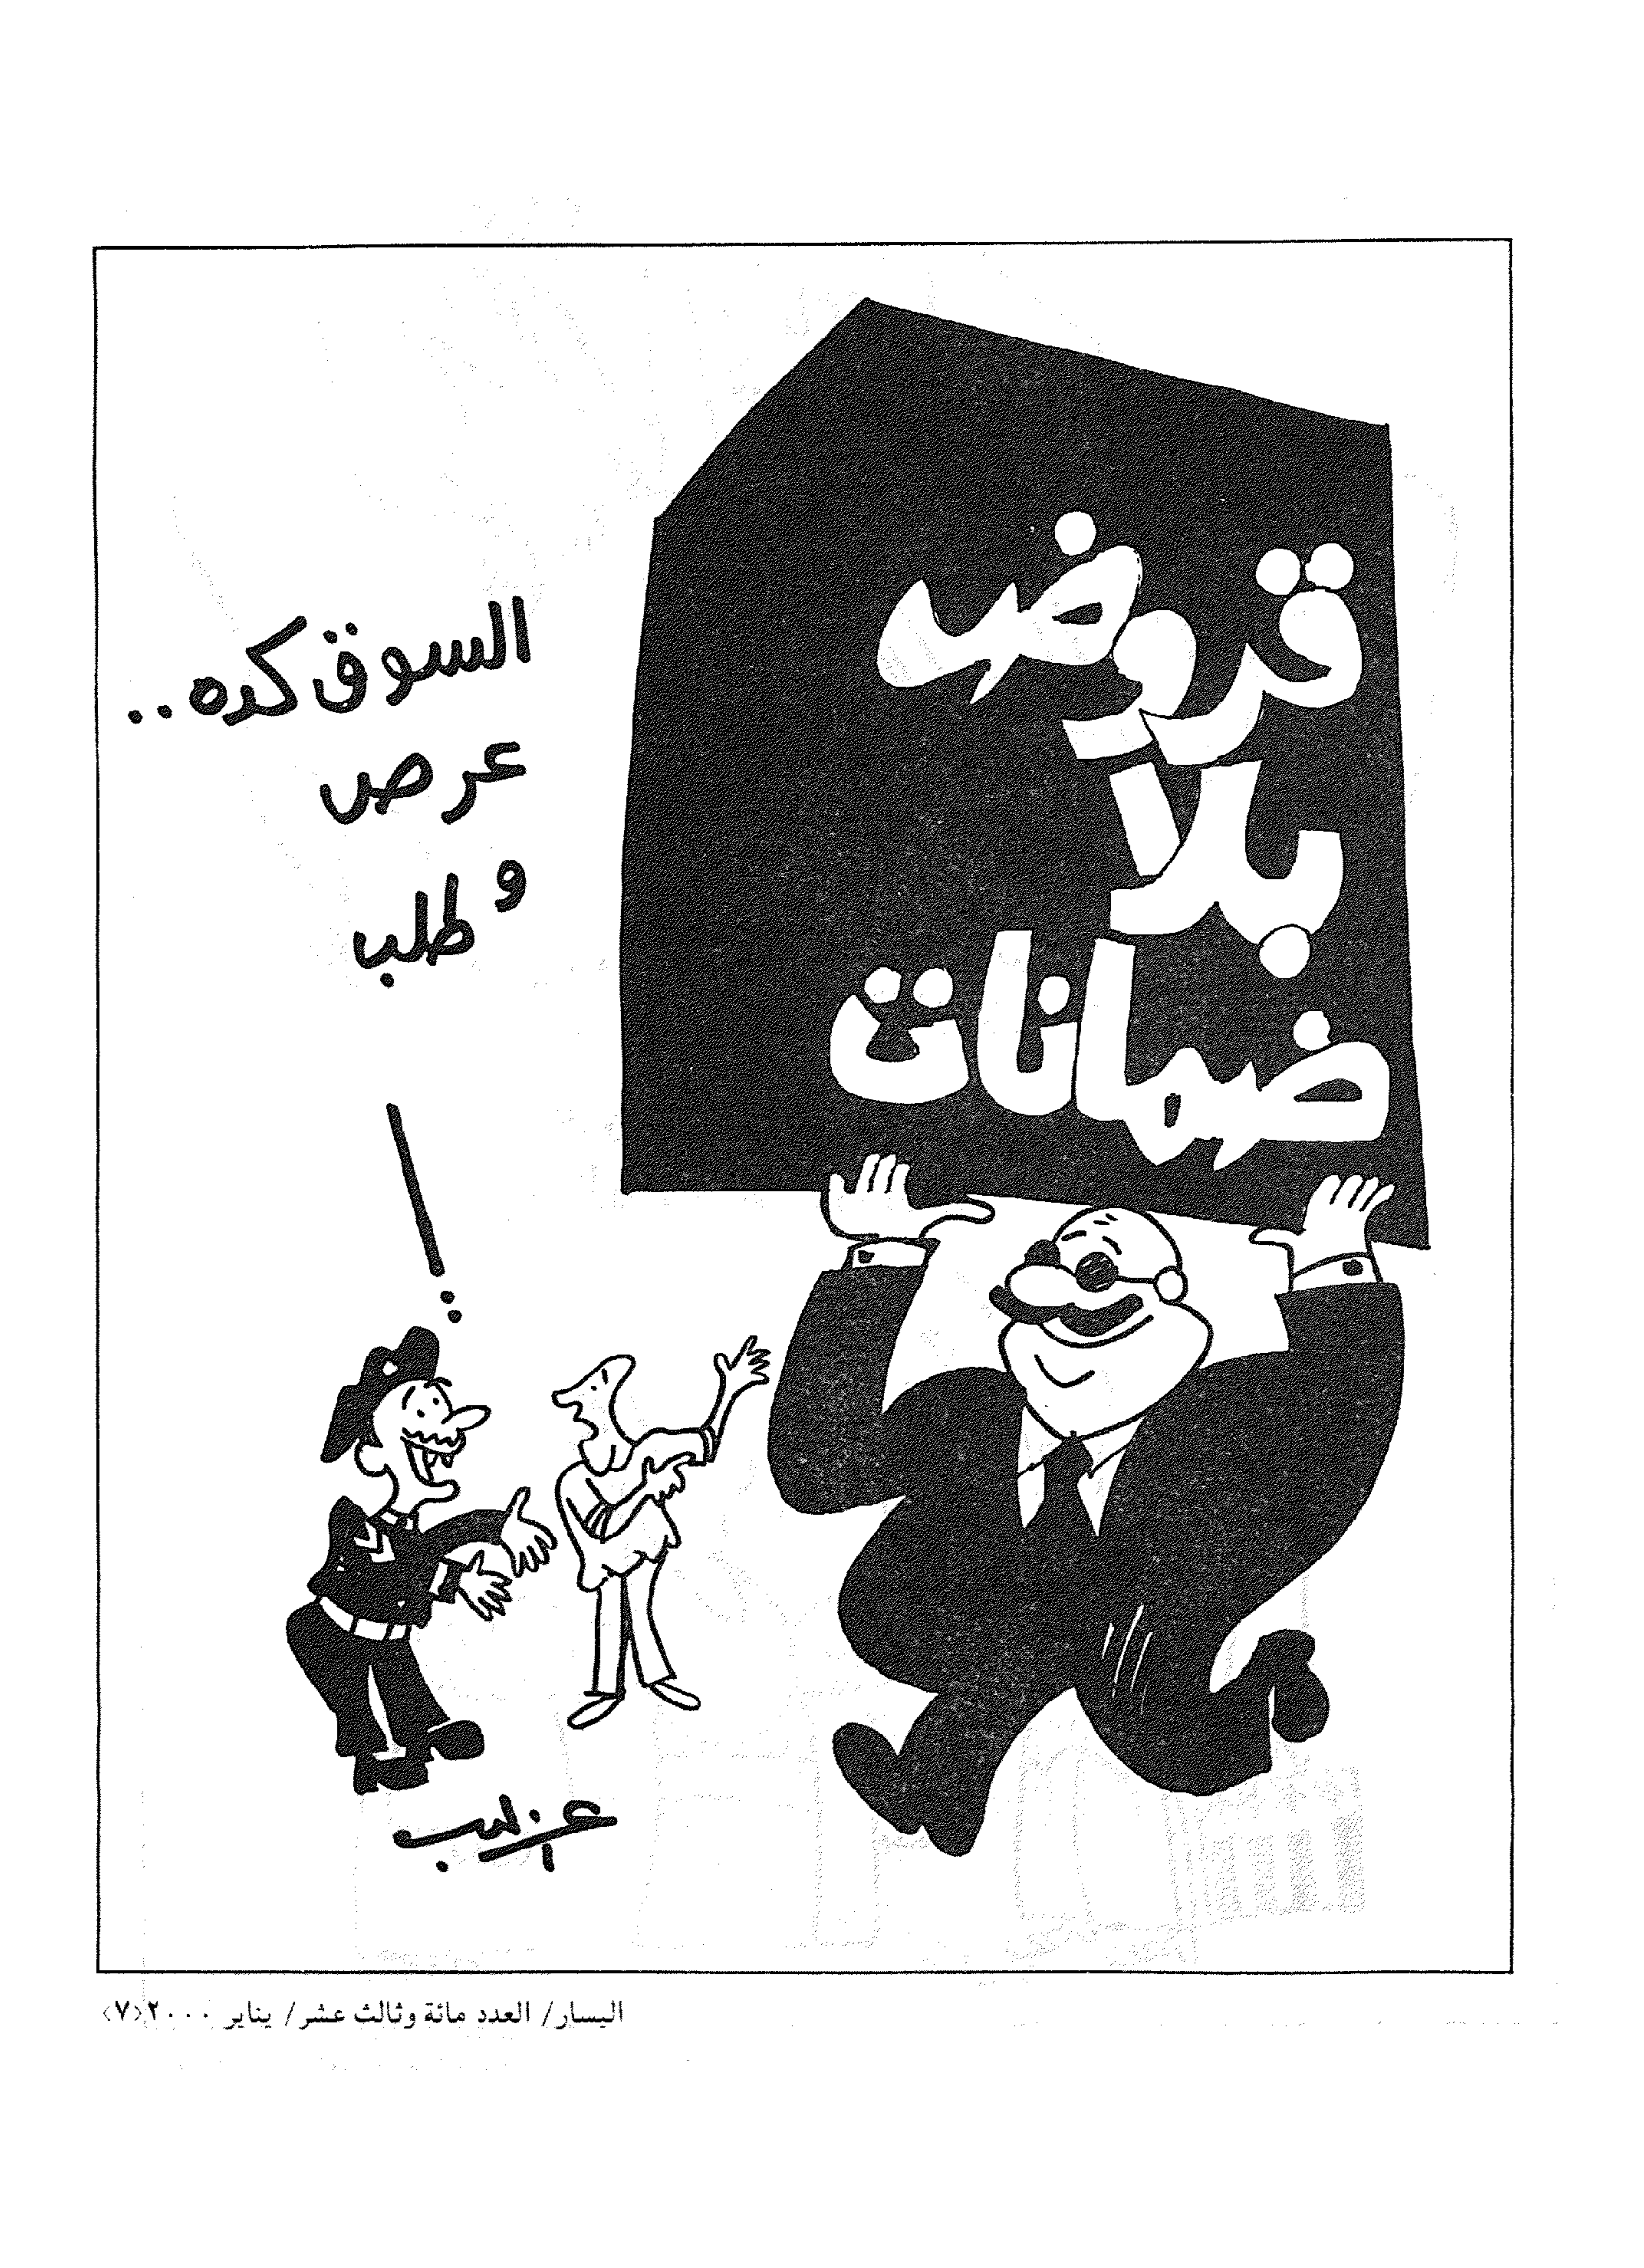 قروض
بلا
ضمانات
السوق كده..
عرص
و
طلب
اليسار/ العدد مائة وثالث عشر/ يناير ٢٠٠٠<٧>